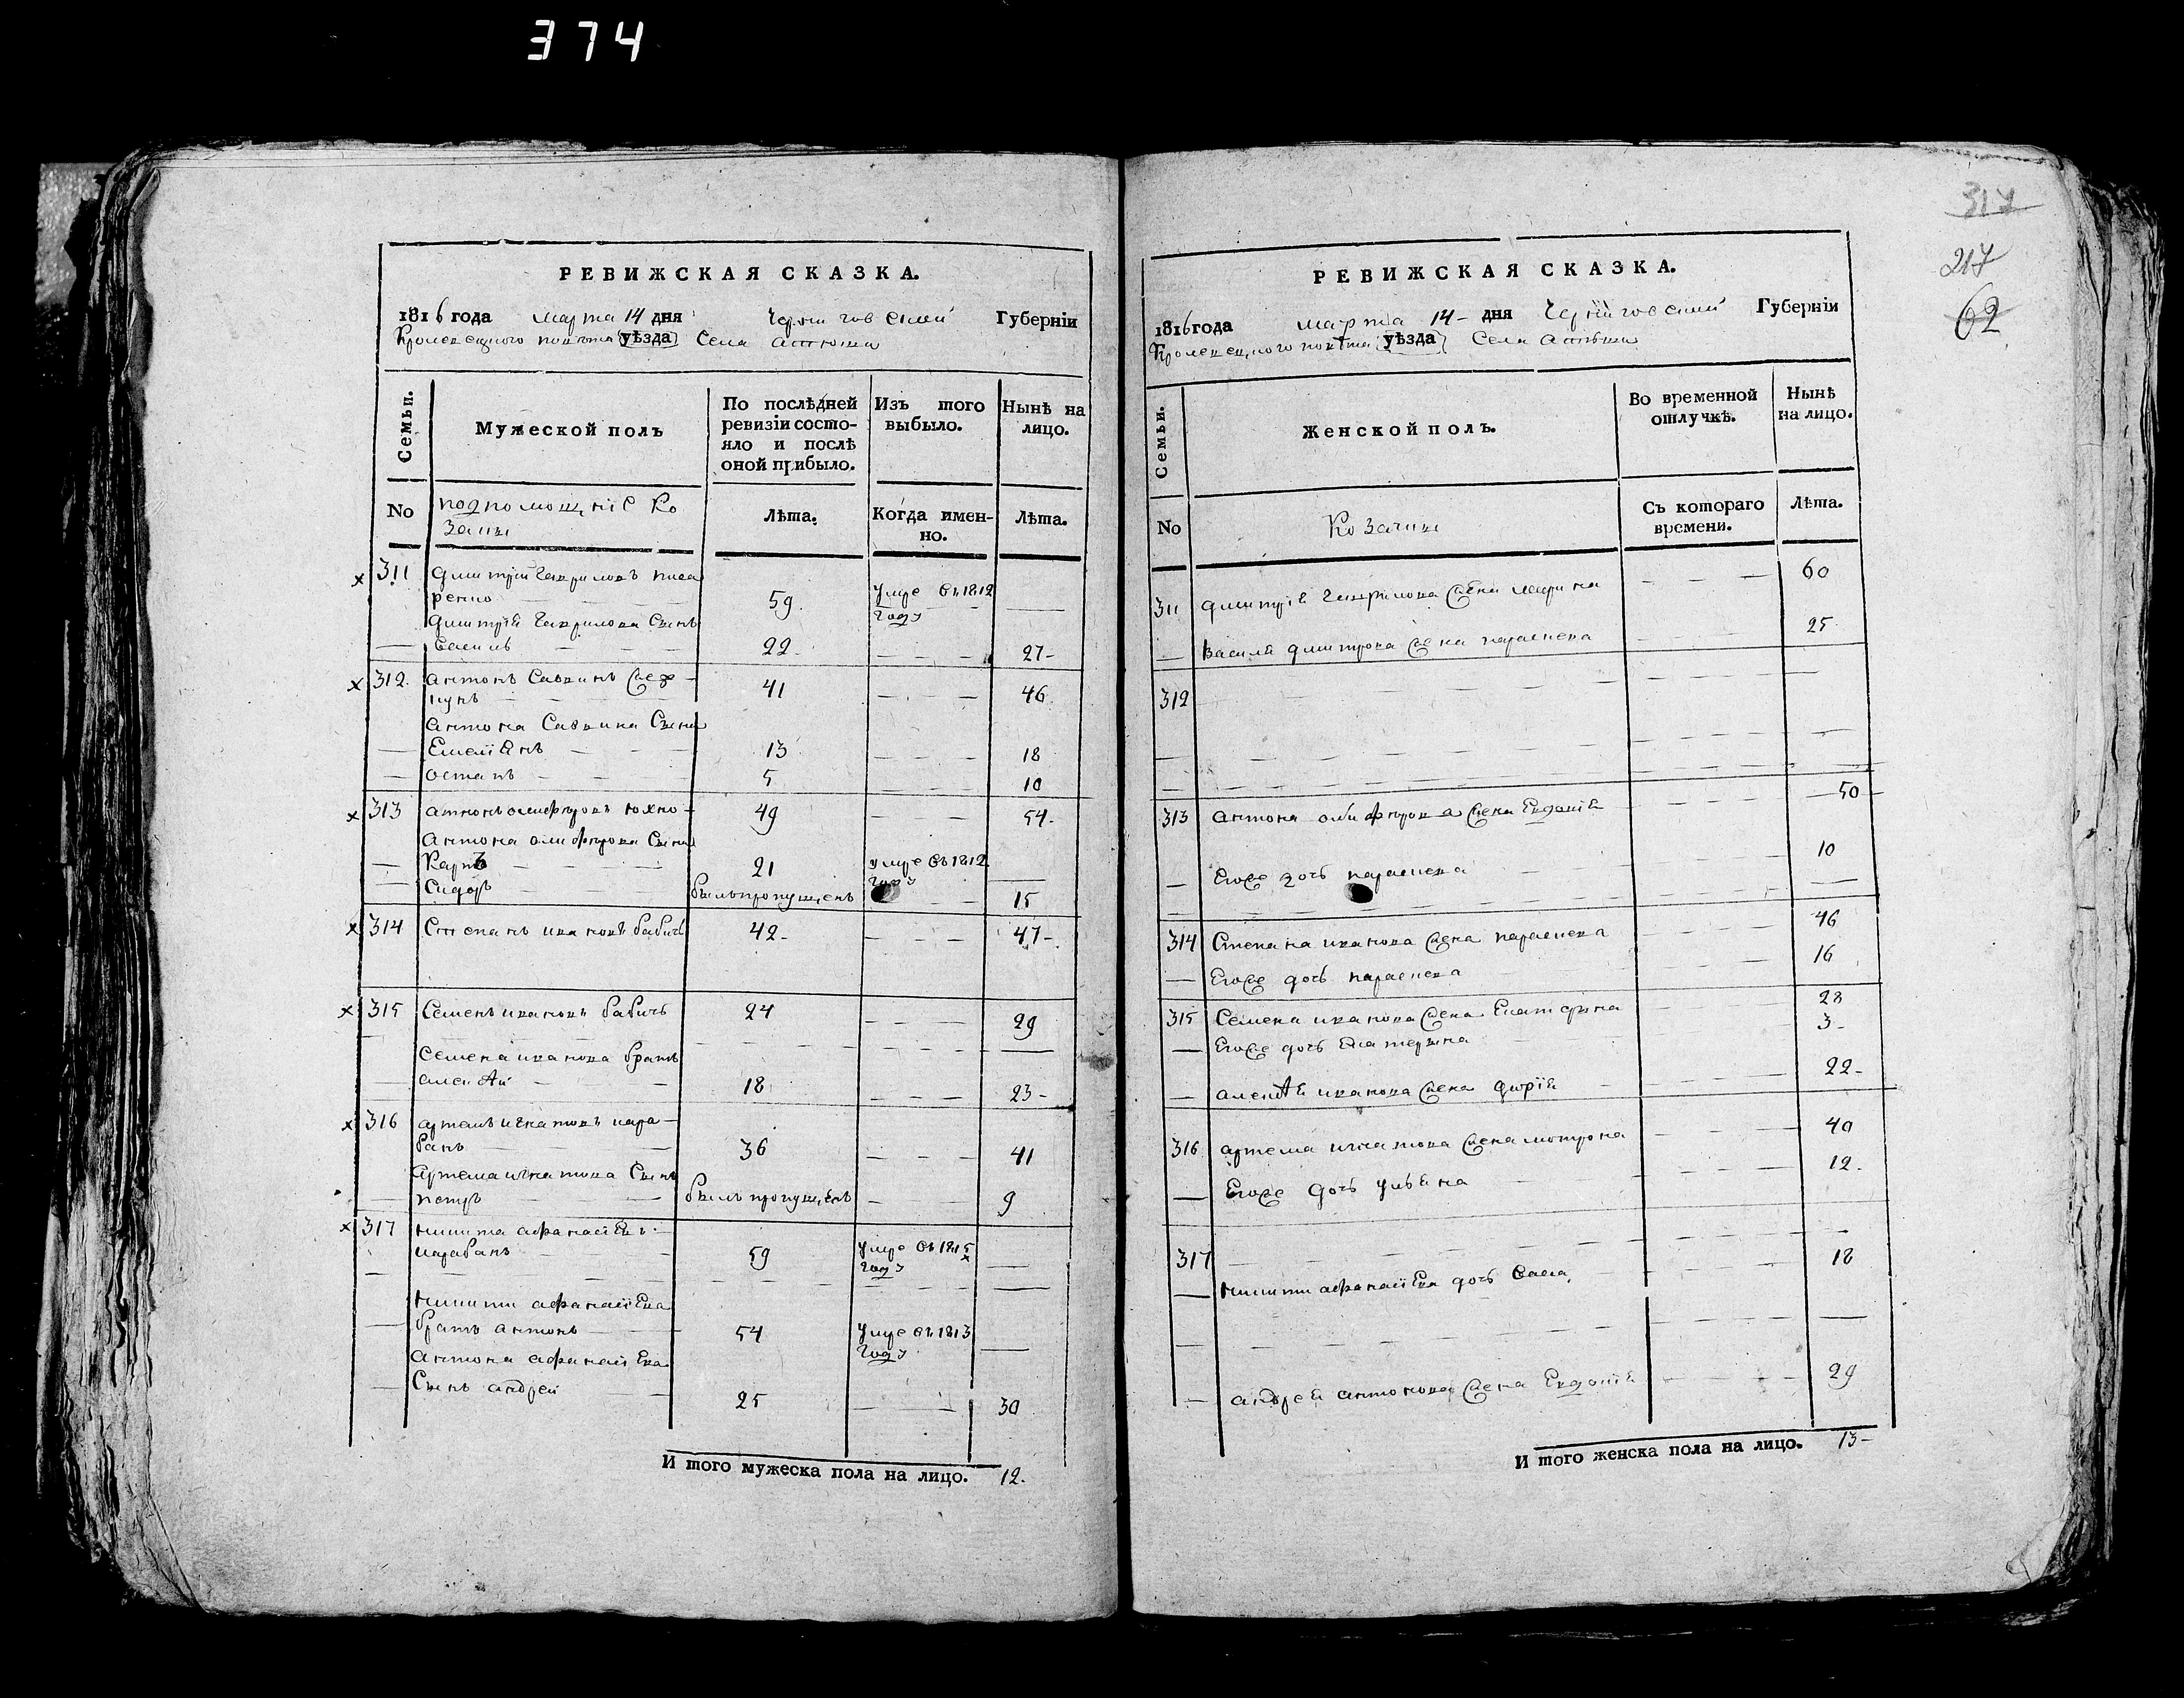 374
РЕВИЖСКАЯ СКАЗКА.
1816 года марта 14 дня Черниговской Губерніи
Кролевецкого повѣта уѣзда Села Атюши
Семьи.
Мужеской полъ
По послѣдней ревизіи состо-
яло и послѣ
оной прибыло.
Изъ того
выбыло.
Нынѣ на
лицо.
No
подпомощніе Ко
заки
Лѣта.
Когда имен-
но.
Лѣта.
311 Дмитрій Гавриловъ писа
ренко 59. умре въ 1812
году
Дмитрія Гаврилова Сынъ
Василь 22 27
312. Антонъ Саввинъ
41 46
Антона Саввина Сыны
Емеліянъ 13 18
Остапъ 5 10
313 Антонъ Юхно 49 54
Антона Сыны
Карпъ 21 умре въ 1812
году
Сидоръ былъ пропущенъ 15
314 Степанъ ивановъ бабичъ 42 47
315 Семенъ ивановъ бабичъ 24 29
Семена иванова братъ
Алексѣй 18 23
316 Артемъ игнатовъ кара-
банъ 36 41
Артема игнатова Сынъ
петръ былъ пропущенъ 9
317 Никита афанасіевъ
карабанъ 59 умре въ 1815
году
Никити афанасіева
братъ антонъ 54 умре въ 1813
году
Антона афанасіева
Сынъ андрей 25 30
И того мужеска пола на лицо. 12.
317
217
62
РЕВИЖСКАЯ СКАЗКА.
1816 года марта 14 дня Черниговской Губерніи
Кролевецкого повѣта уѣзда Села Атюши
Семьи.
Женской полъ.
Во временной
отлучкѣ.
Нынѣ
на лицо.
No
Козачки
Съ котораго
времени.
Лѣта.
311 Дмитрія Гаврилова жена марина 60
Василя дмитрова жена параскева 25
312
313 Антона жена Евдокія 50
Егоже дочь параскева 10
314 Степана иванова жена параскева 46
Егоже дочь параскева 16
315 Семена иванова жена Екатерина 28
Егоже дочь Екатерина 3
алексѣя иванова жена дарія 22
316 артема игнатова жена мотрона 40
Егоже дочь улѣяна 12
317
Никити афанасіева дочь 18
андрея антонова жена Евдокія 29
И того женска пола на лицо. 13